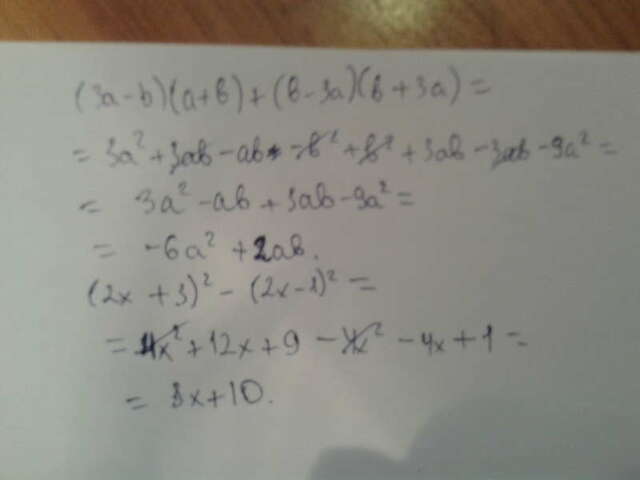 (3a-b)(a+b)+(b-3a)(b+3a)=
=3a²+3ab-ab-b²+b²+3ab-3ab-9a²=
= 3a²-ab+3ab-9a²=
= -6a²+2ab.
(2x+3)²-(2x-1)²=
=4x²+12x+9-4x²-4x+1=
= 8x+10.